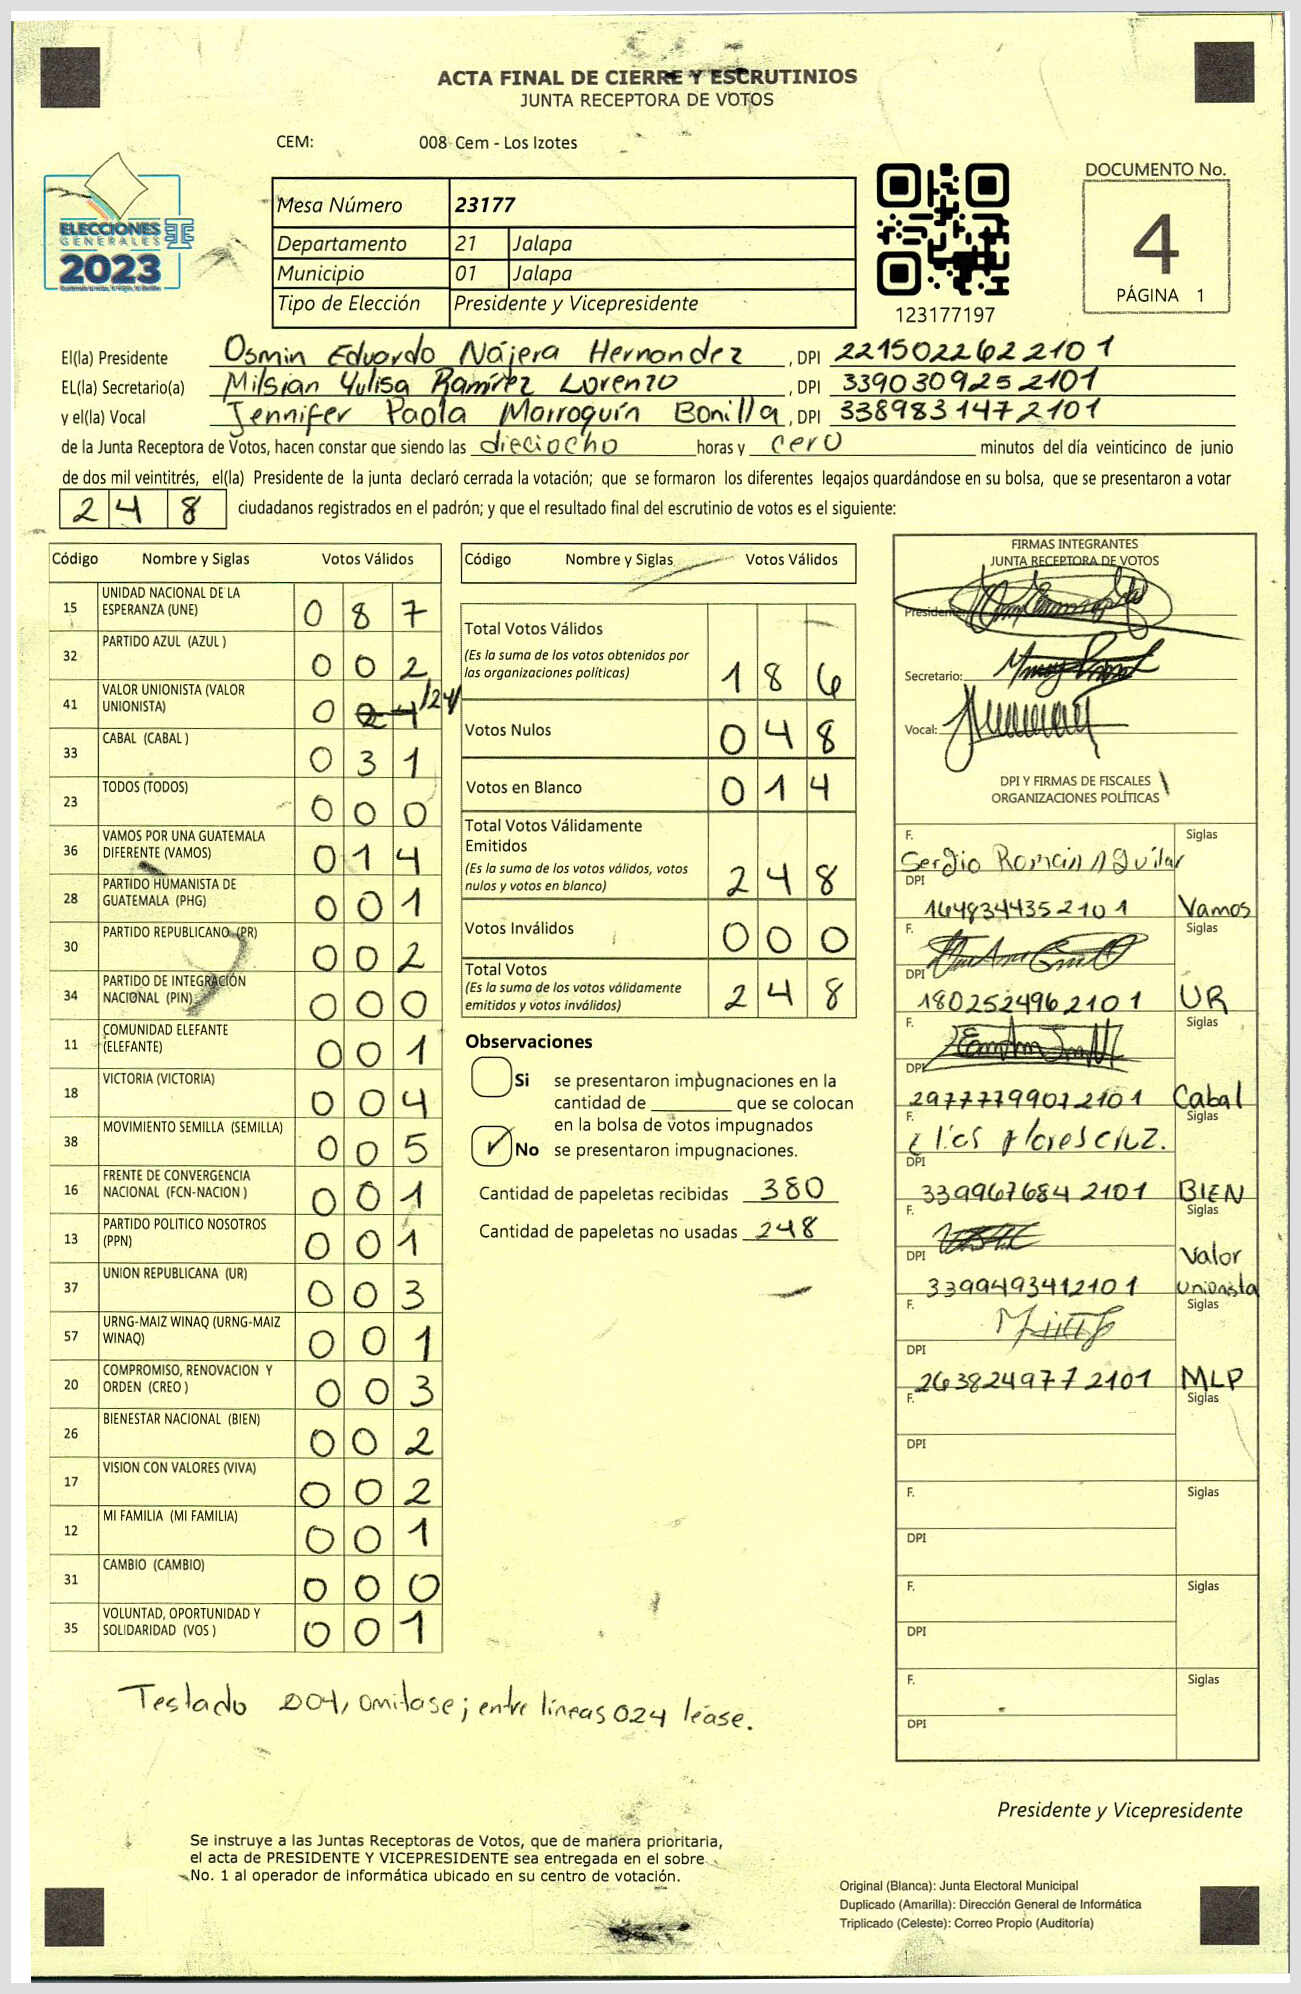 ACTA FINAL DE CIERRE Y ESCRUTINIOS
JUNTA RECEPTORA DE VOTOS
CEM: 008 Cem - Los Izotes
ELECCIONES
GENERALES
2023
Mesa Número 23177
Departamento 21 Jalapa
Municipio 01 Jalapa
Tipo de Elección Presidente y Vicepresidente
123177197
DOCUMENTO No.
4
PÁGINA 1
El(la) Presidente Osmin Eduardo Nájera Hernandez, DPI 2215022622101
EL(la) Secretario(a) Milsian Yulisa Ramírez Lorenzo, DPI 3390309252101
y el(la) Vocal Jennifer Paola Marroquín Bonilla, DPI 3389831472101
de la Junta Receptora de Votos, hacen constar que siendo las dieciocho horas y cero minutos del día veinticinco de junio
de dos mil veintitrés, el(la) Presidente de la junta declaró cerrada la votación; que se formaron los diferentes legajos guardándose en su bolsa, que se presentaron a votar
248 ciudadanos registrados en el padrón; y que el resultado final del escrutinio de votos es el siguiente:
Código Nombre y Siglas Votos Válidos
15 UNIDAD NACIONAL DE LA ESPERANZA (UNE) 0 8 7
32 PARTIDO AZUL (AZUL ) 0 0 2
41 VALOR UNIONISTA (VALOR UNIONISTA) 0 /24/
33 CABAL (CABAL ) 0 3 1
23 TODOS (TODOS) 0 0 0
36 VAMOS POR UNA GUATEMALA DIFERENTE (VAMOS) 0 1 4
28 PARTIDO HUMANISTA DE GUATEMALA (PHG) 0 0 1
30 PARTIDO REPUBLICANO (PR) 0 0 2
34 PARTIDO DE INTEGRACIÓN NACIONAL (PIN) 0 0 0
11 COMUNIDAD ELEFANTE (ELEFANTE) 0 0 1
18 VICTORIA (VICTORIA) 0 0 4
38 MOVIMIENTO SEMILLA (SEMILLA) 0 0 5
16 FRENTE DE CONVERGENCIA NACIONAL (FCN-NACION ) 0 0 1
13 PARTIDO POLITICO NOSOTROS (PPN) 0 0 1
37 UNION REPUBLICANA (UR) 0 0 3
57 URNG-MAIZ WINAQ (URNG-MAIZ WINAQ) 0 0 1
20 COMPROMISO, RENOVACION Y ORDEN (CREO ) 0 0 3
26 BIENESTAR NACIONAL (BIEN) 0 0 2
17 VISION CON VALORES (VIVA) 0 0 2
12 MI FAMILIA (MI FAMILIA) 0 0 1
31 CAMBIO (CAMBIO) 0 0 0
35 VOLUNTAD, OPORTUNIDAD Y SOLIDARIDAD (VOS ) 0 0 1
Testado 204, omitase; entre líneas 024 léase.
Código Nombre y Siglas Votos Válidos
Total Votos Válidos 1 8 6
(Es la suma de los votos obtenidos por
las organizaciones políticas)
Votos Nulos 0 4 8
Votos en Blanco 0 1 4
Total Votos Válidamente
Emitidos 2 4 8
(Es la suma de los votos válidos, votos
nulos y votos en blanco)
Votos Inválidos 0 0 0
Total Votos 2 4 8
(Es la suma de los votos válidamente
emitidos y votos inválidos)
Observaciones
Si se presentaron impugnaciones en la
cantidad de ________ que se colocan
en la bolsa de votos impugnados
No se presentaron impugnaciones.
Cantidad de papeletas recibidas 380
Cantidad de papeletas no usadas 248
FIRMAS INTEGRANTES
JUNTA RECEPTORA DE VOTOS
Presidente:
Secretario:
Vocal:
DPI Y FIRMAS DE FISCALES
ORGANIZACIONES POLÍTICAS
F. Sergio Roman Aguilar Siglas
DPI 1648344352101 Vamos
F. Siglas
DPI 1802524962101 UR
F. Siglas
DPI 2977779907 2101 Cabal
F. Elias Flores Cruz. Siglas
DPI 3399676842101 BIEN
F. Siglas
DPI 3399493412101 Valor Unionista
F. Siglas
DPI 2638249772101 MLP
F. Siglas
DPI
F. Siglas
DPI
F. Siglas
DPI
F. Siglas
DPI
Presidente y Vicepresidente
Se instruye a las Juntas Receptoras de Votos, que de manera prioritaria,
el acta de PRESIDENTE Y VICEPRESIDENTE sea entregada en el sobre
No. 1 al operador de informática ubicado en su centro de votación.
Original (Blanca): Junta Electoral Municipal
Duplicado (Amarilla): Dirección General de Informática
Triplicado (Celeste): Correo Propio (Auditoría)